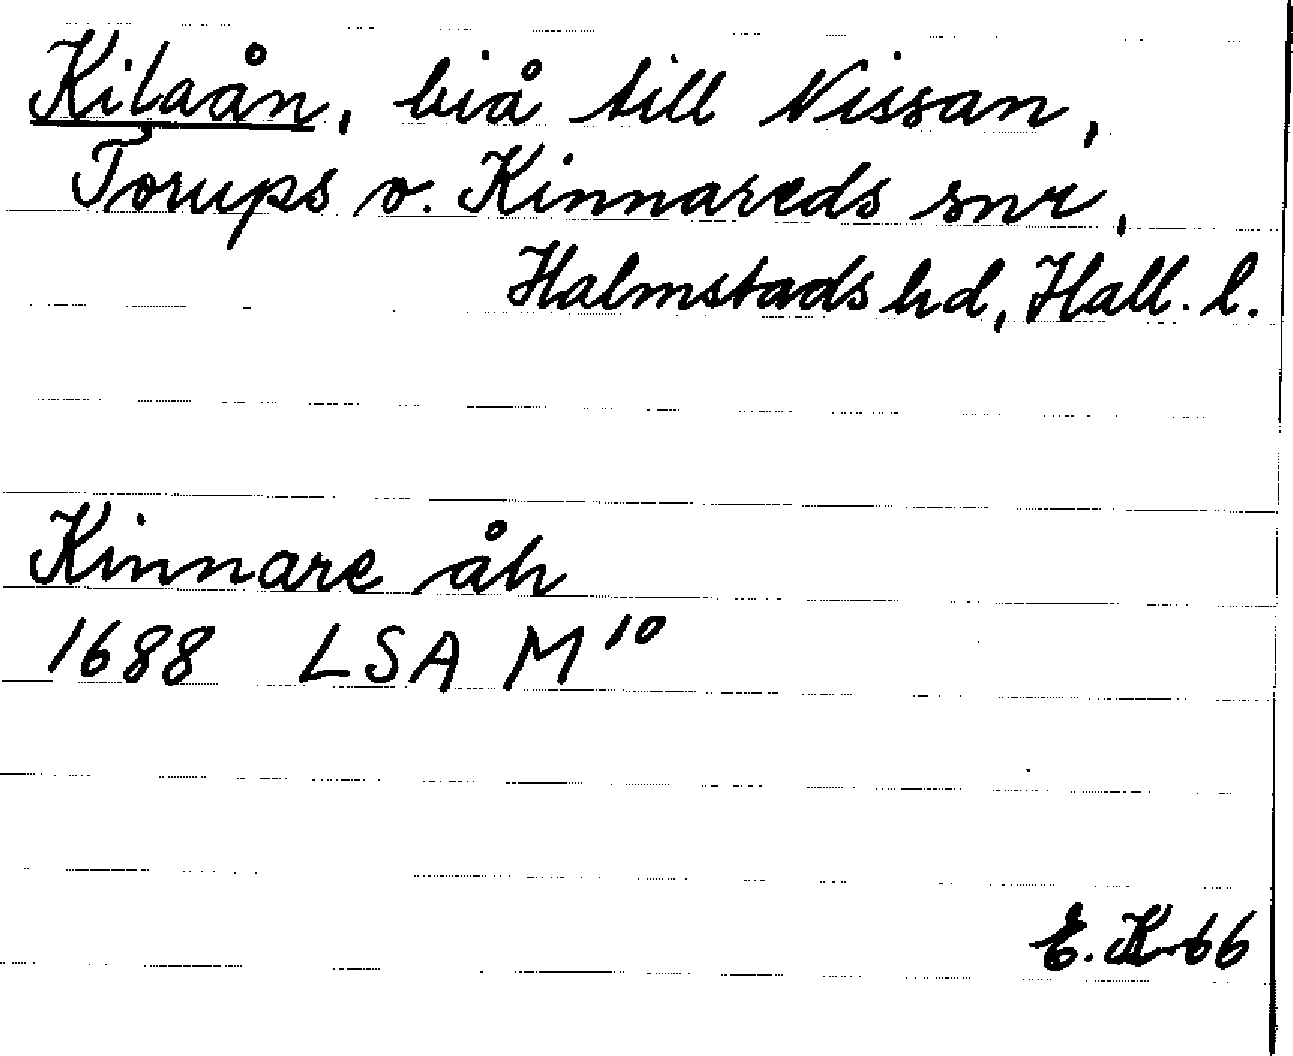 Kilaån, biå till Nissan,
Torups o. Kinnareds snr,
Halmstads hd, Hall. l.
Kinnare åh
1688 LSA M¹⁰
E. K-66